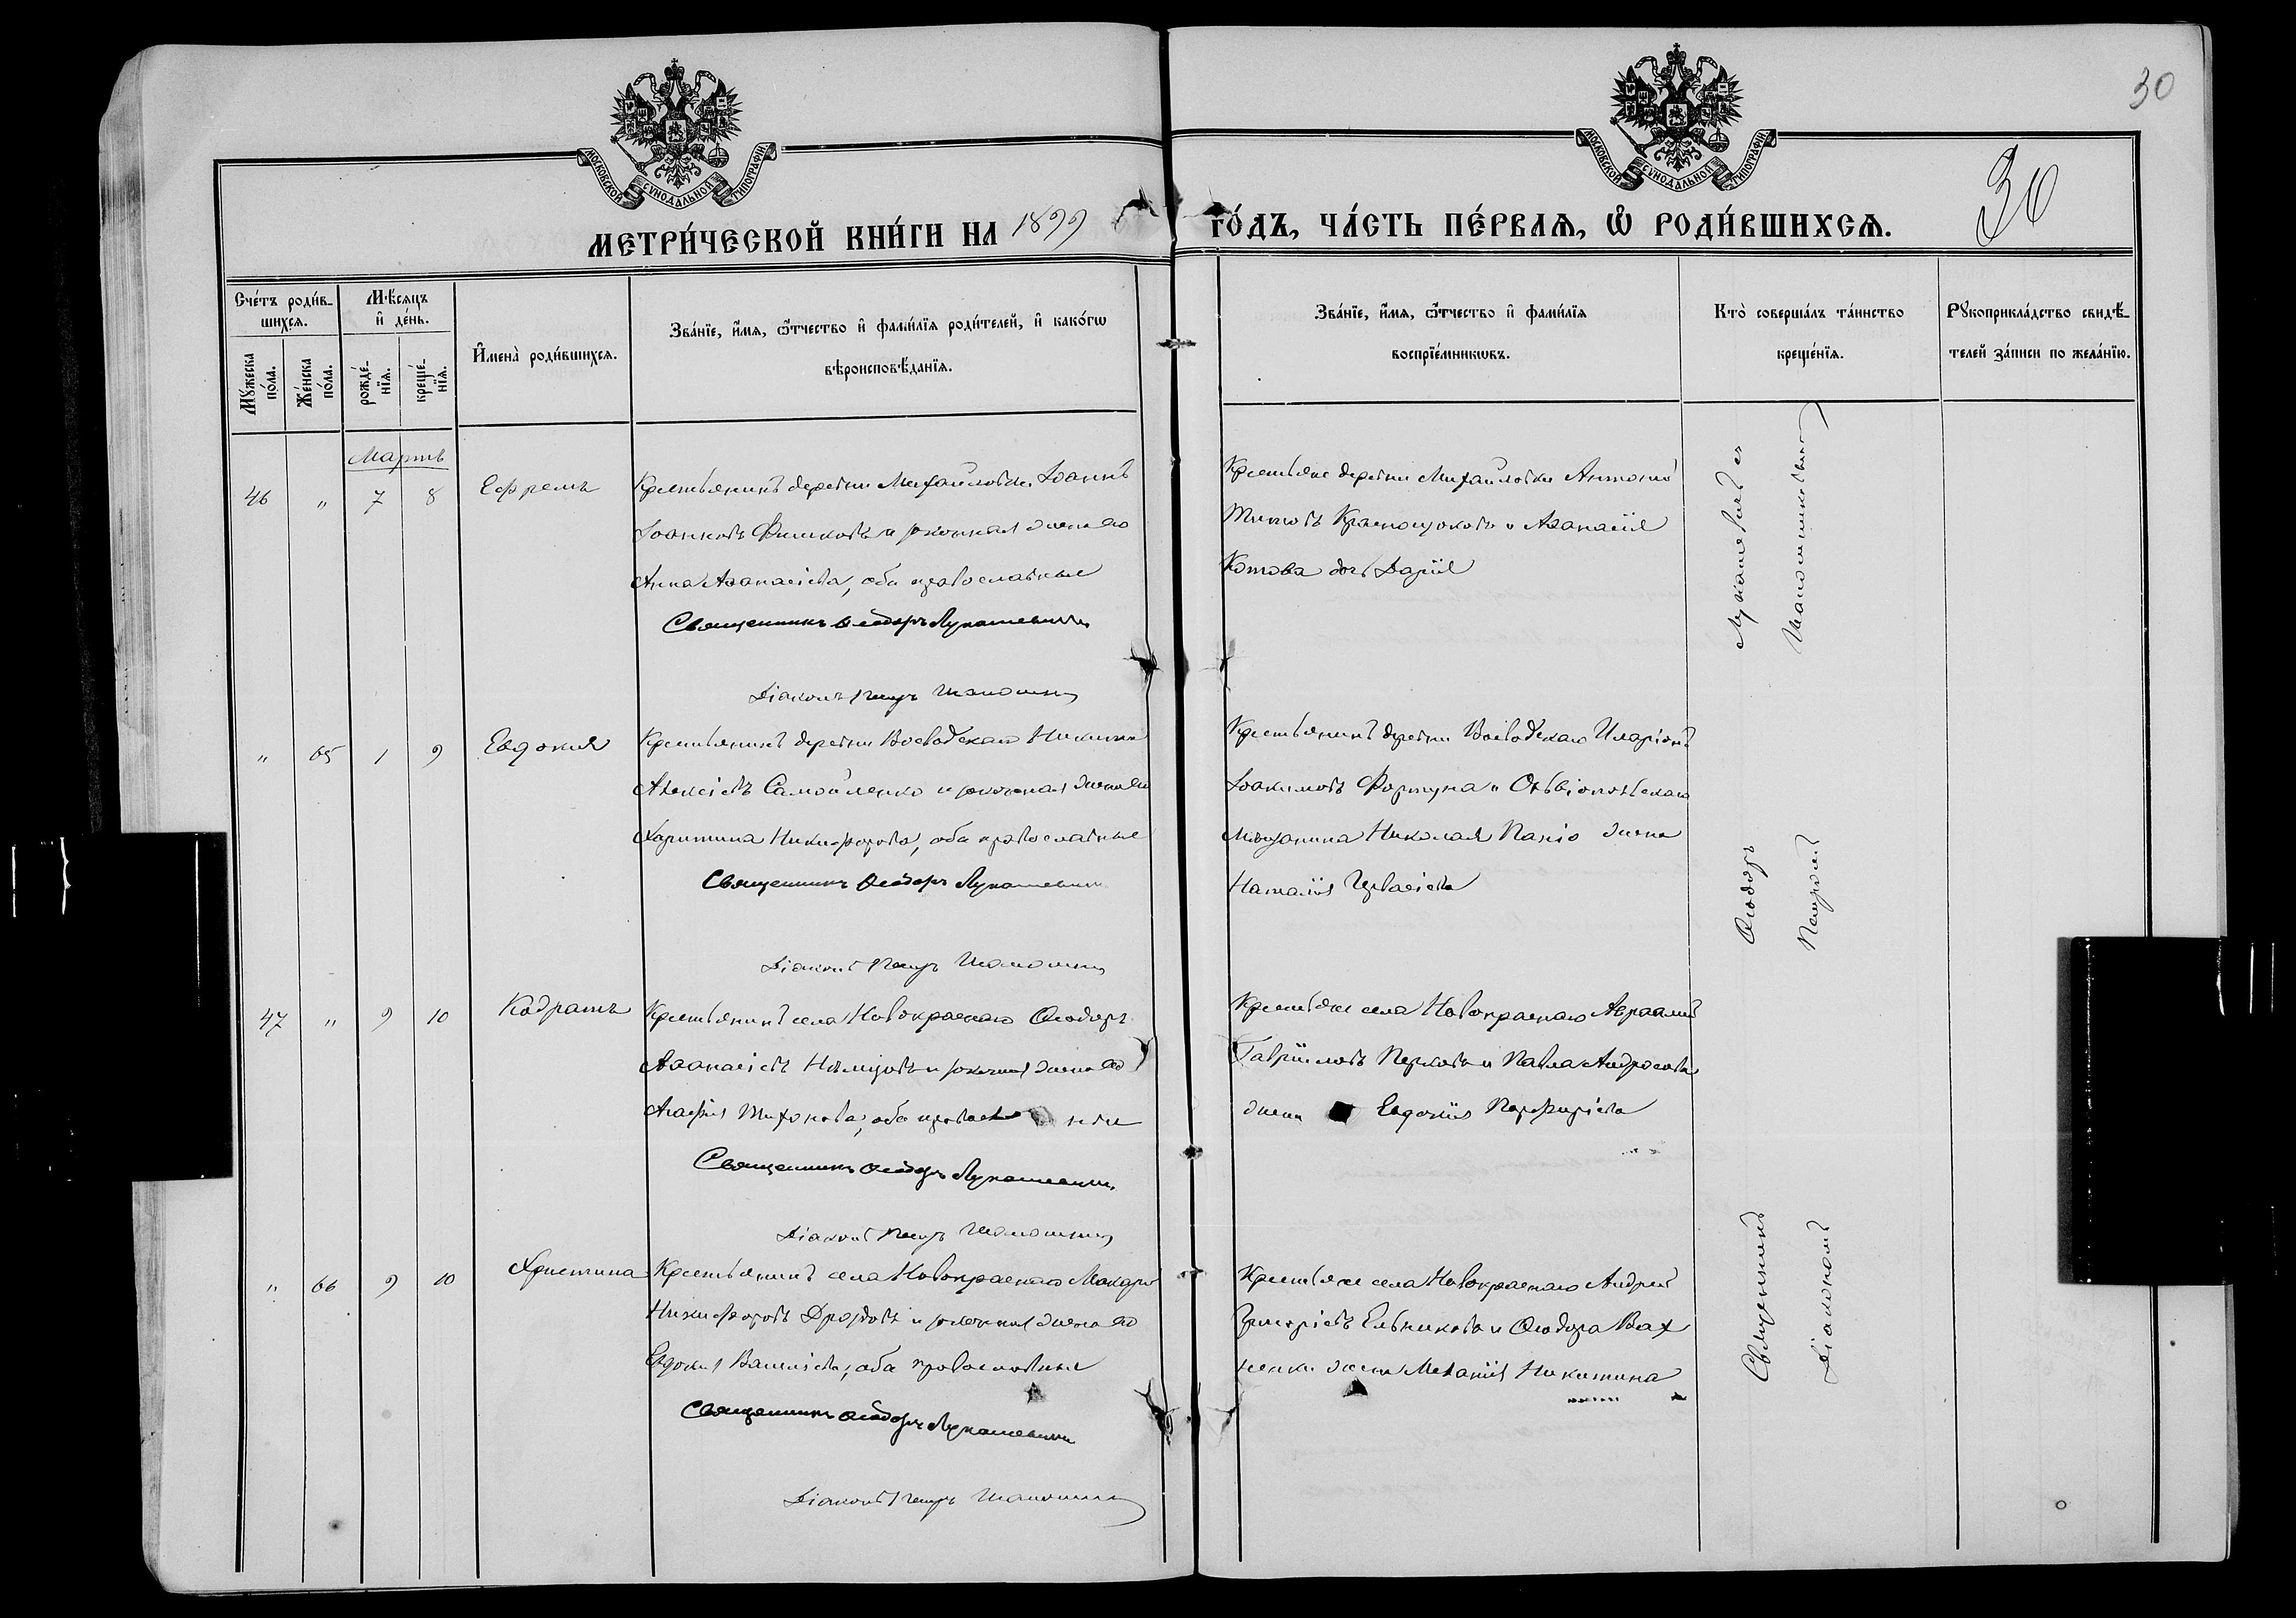 30
МОСКОВСКОЙ СѴНОДАЛЬНОЙ ТИПОГРАФІИ.
МОСКОВСКОЙ СѴНОДАЛЬНОЙ ТИПОГРАФІИ.
30
МЕТРИ́ЧЕСКОЙ КНИ́ГИ НА 1899
ГО́ДЪ, ЧА́СТЬ ПЕ́РВАѦ, Ѡ РОДИ́ВШИХСѦ.
Сче́тъ роди́в-
шихсѧ.
Мꙋ́жеска по́ла.
Же́нска по́ла.
Мѣ́сѧцъ
и҆ де́нь.
рожде́-
нїѧ.
креще́-
нїѧ.
И҆мена̀ роди́вшихсѧ.
Зва́нїе, и҆́мѧ, ѻ҆́тчество и҆ фами́лїѧ роди́телей, и҆ како́гѡ
вѣроисповѣ́данїѧ.
Зва́нїе, и҆́мѧ, ѻ҆́тчество и҆ фами́лїѧ
воспрїе́мникѡвъ.
Кто̀ соверша́лъ та́инство
креще́нїѧ.
Рꙋкоприкла́дство свидѣ́-
телей за́писи по жела́нїю.
Мартъ
46 " 7 8 Ефремъ
Крестьянинъ деревни Михайловки Іоаннъ
Іоанновъ и законная жена его
Анна Аѳанасіева, оба православные
Священникъ Ѳеодоръ Лукашевичъ
Діаконъ Петръ
Крестьяне деревни Михайловки Антоній
Титовъ и Аѳанасія
Котова дочь Дарія
" 65 1 9 Евдокія
Крестьянинъ деревни Воеводскаго Никита
Алексіевъ Самойленко и законная жена его
Харитина Никифорова, оба православные
Священникъ Ѳеодоръ Лукашевичъ
Діаконъ Петръ
Крестьянинъ деревни Воеводскаго Иларіонъ
Іоакимовъ Фортуна и
мѣщанина Николая жена
Наталія
47 " 9 10 Кодратъ
Крестьянинъ села Новокраснаго Ѳеодоръ
Аѳанасіевъ Нѣмцовъ и законная жена его
Агафія Тихонова, оба православные
Священникъ Ѳеодоръ Лукашевичъ
Діаконъ Петръ
Крестьяне села Новокраснаго Авраамій
Гавріиловъ и Павла
жена Евдокія Порфиріева
" 66 9 10 Христина
Крестьянинъ села Новокраснаго Макарій
Никифоровъ Дроздовъ и законная жена его
Евдокія Василіева, оба православные
Священникъ Ѳеодоръ Лукашевичъ
Діаконъ Петръ
Крестьяне села Новокраснаго Андрей
Григоріевъ и Ѳеодора Вах
ненки жена Меланія Никитина
Священникъ Ѳеодоръ Лукашевичъ съ
Діакономъ Петромъ